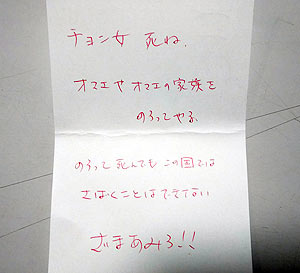 チョン女 死ね、
オマエやオマエの家族を
のろってやる
のろって死んでも この国では
さばくことはできない
ざまあみろ!!